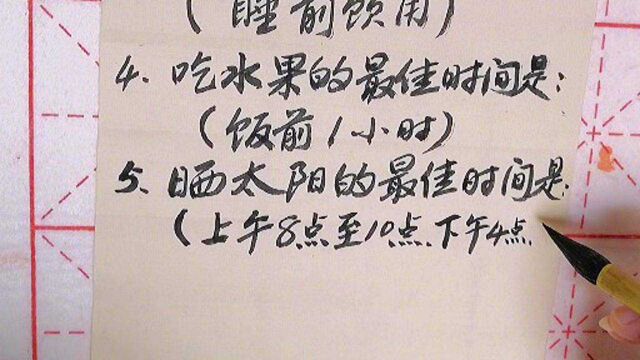 （睡前饮用）
4、吃水果的最佳时间是：
（饭前1小时）
5、晒太阳的最佳时间是：
（上午8点至10点.下午4点.